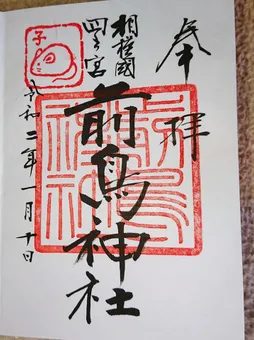 奉拝
相模國
四之宮
前鳥神社
子
令和二年一月十日
前鳥神社